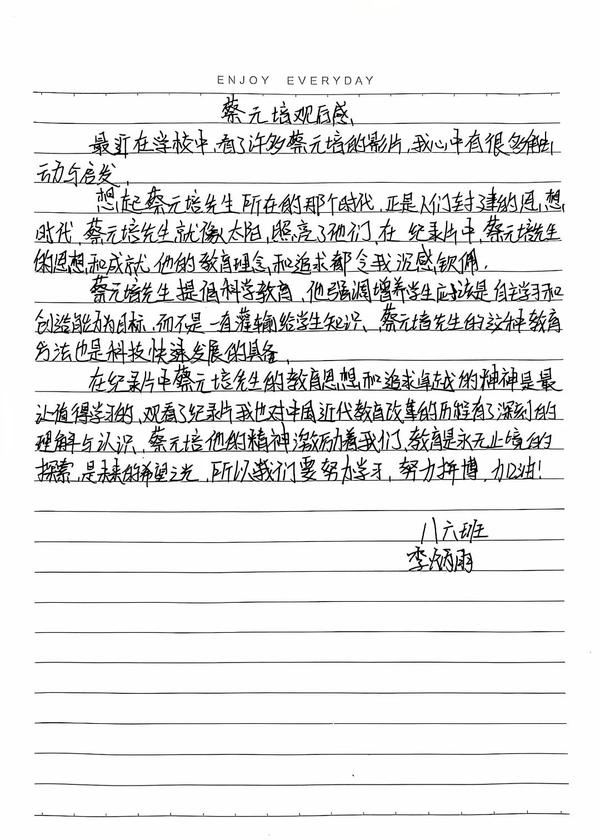 ENJOY EVERYDAY
蔡元培观后感
最近在学校中,看了许多蔡元培的影片,我心中有很多触
动与启发,
想起蔡元培先生所在的那个时代,正是人们封建的思想
时代,蔡元培先生就像太阳,照亮了他们,在纪录片中,蔡元培先生
的思想和成就,他的教育理念和追求都令我深感钦佩.
蔡元培先生提倡科学教育,他强调增养学生应该是自主学习和
创造能力为目标,而不是一直灌输给学生知识、蔡元培先生的这种教育
方法也是科技快速发展的具备,
在纪录片中蔡元培先生的教育思想和追求卓越的精神是最
让值得学习的,观看了纪录片我也对中国近代教育改革的历程有了深刻的
理解与认识,蔡元培他的精神激励着我们,教育是永无止境的
探索,是未来的希望之光,所以我们要努力学习,努力拼搏,加油!
八六班
李炳雨